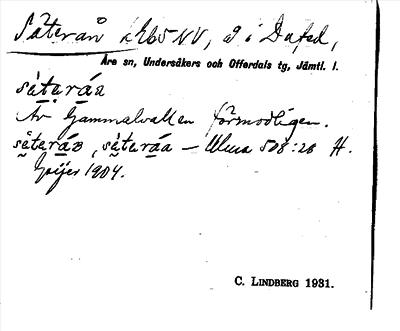 Såterån k Eb5NV, å i Dufed,
Åre sn, Undersåkers och Offerdals tg, Jämtl. l.
såtəráa
Av Gammalvallen förmodligen.
såtəráa, såtəráa – Ulma 508:28 H.
Geijer 1904.
C. LINDBERG 1931.